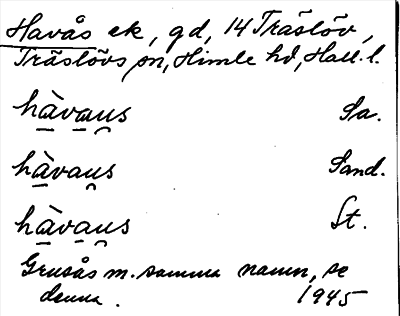 Havås ek, gd, 14 Träslöv,
Träslövs sn, Himle hd, Hall. l.
hàvaus Sa.
hàvaus Sand.
hàvaus St.
Grusås m. samma namn, se
denna. 1945